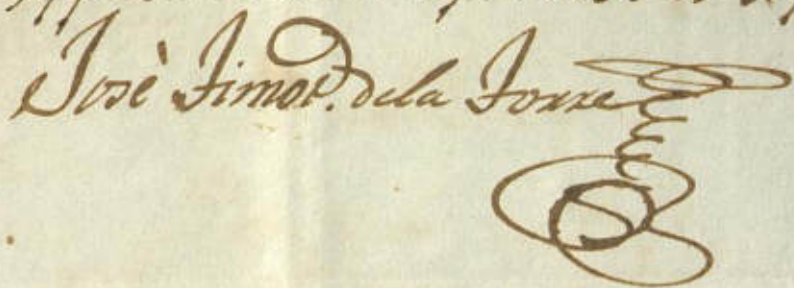 Josè Timot. dela Torre